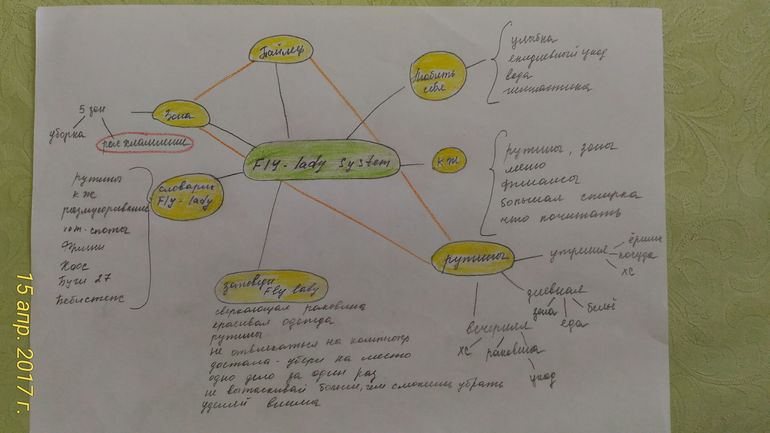 Таймер
Любить
себя
улыбка
ежедневный уход
вода
гимнастика
Зона
5 зон
уборка
расхламление
Fly-lady System
КЖ
рутины, зоны
меню
финансы
большая стирка
что почитать
словарик
Fly-lady
рутины
КЖ
размусоривание
хот-споты
Хаос
Буги 27
Бебистепс
рутины
утренняя
ёршик
посуда
ХС
дневная
зона
еда
бельё
вечерняя
ХС
раковина
уход
заповеди
Fly lady
сверкающая раковина
красивая одежда
рутины
не отвлекаться на компьютер
достала - убери на место
одно дело за один раз
не вытаскивай больше, чем сможешь убрать
уделяй
15 апр. 2017 г.